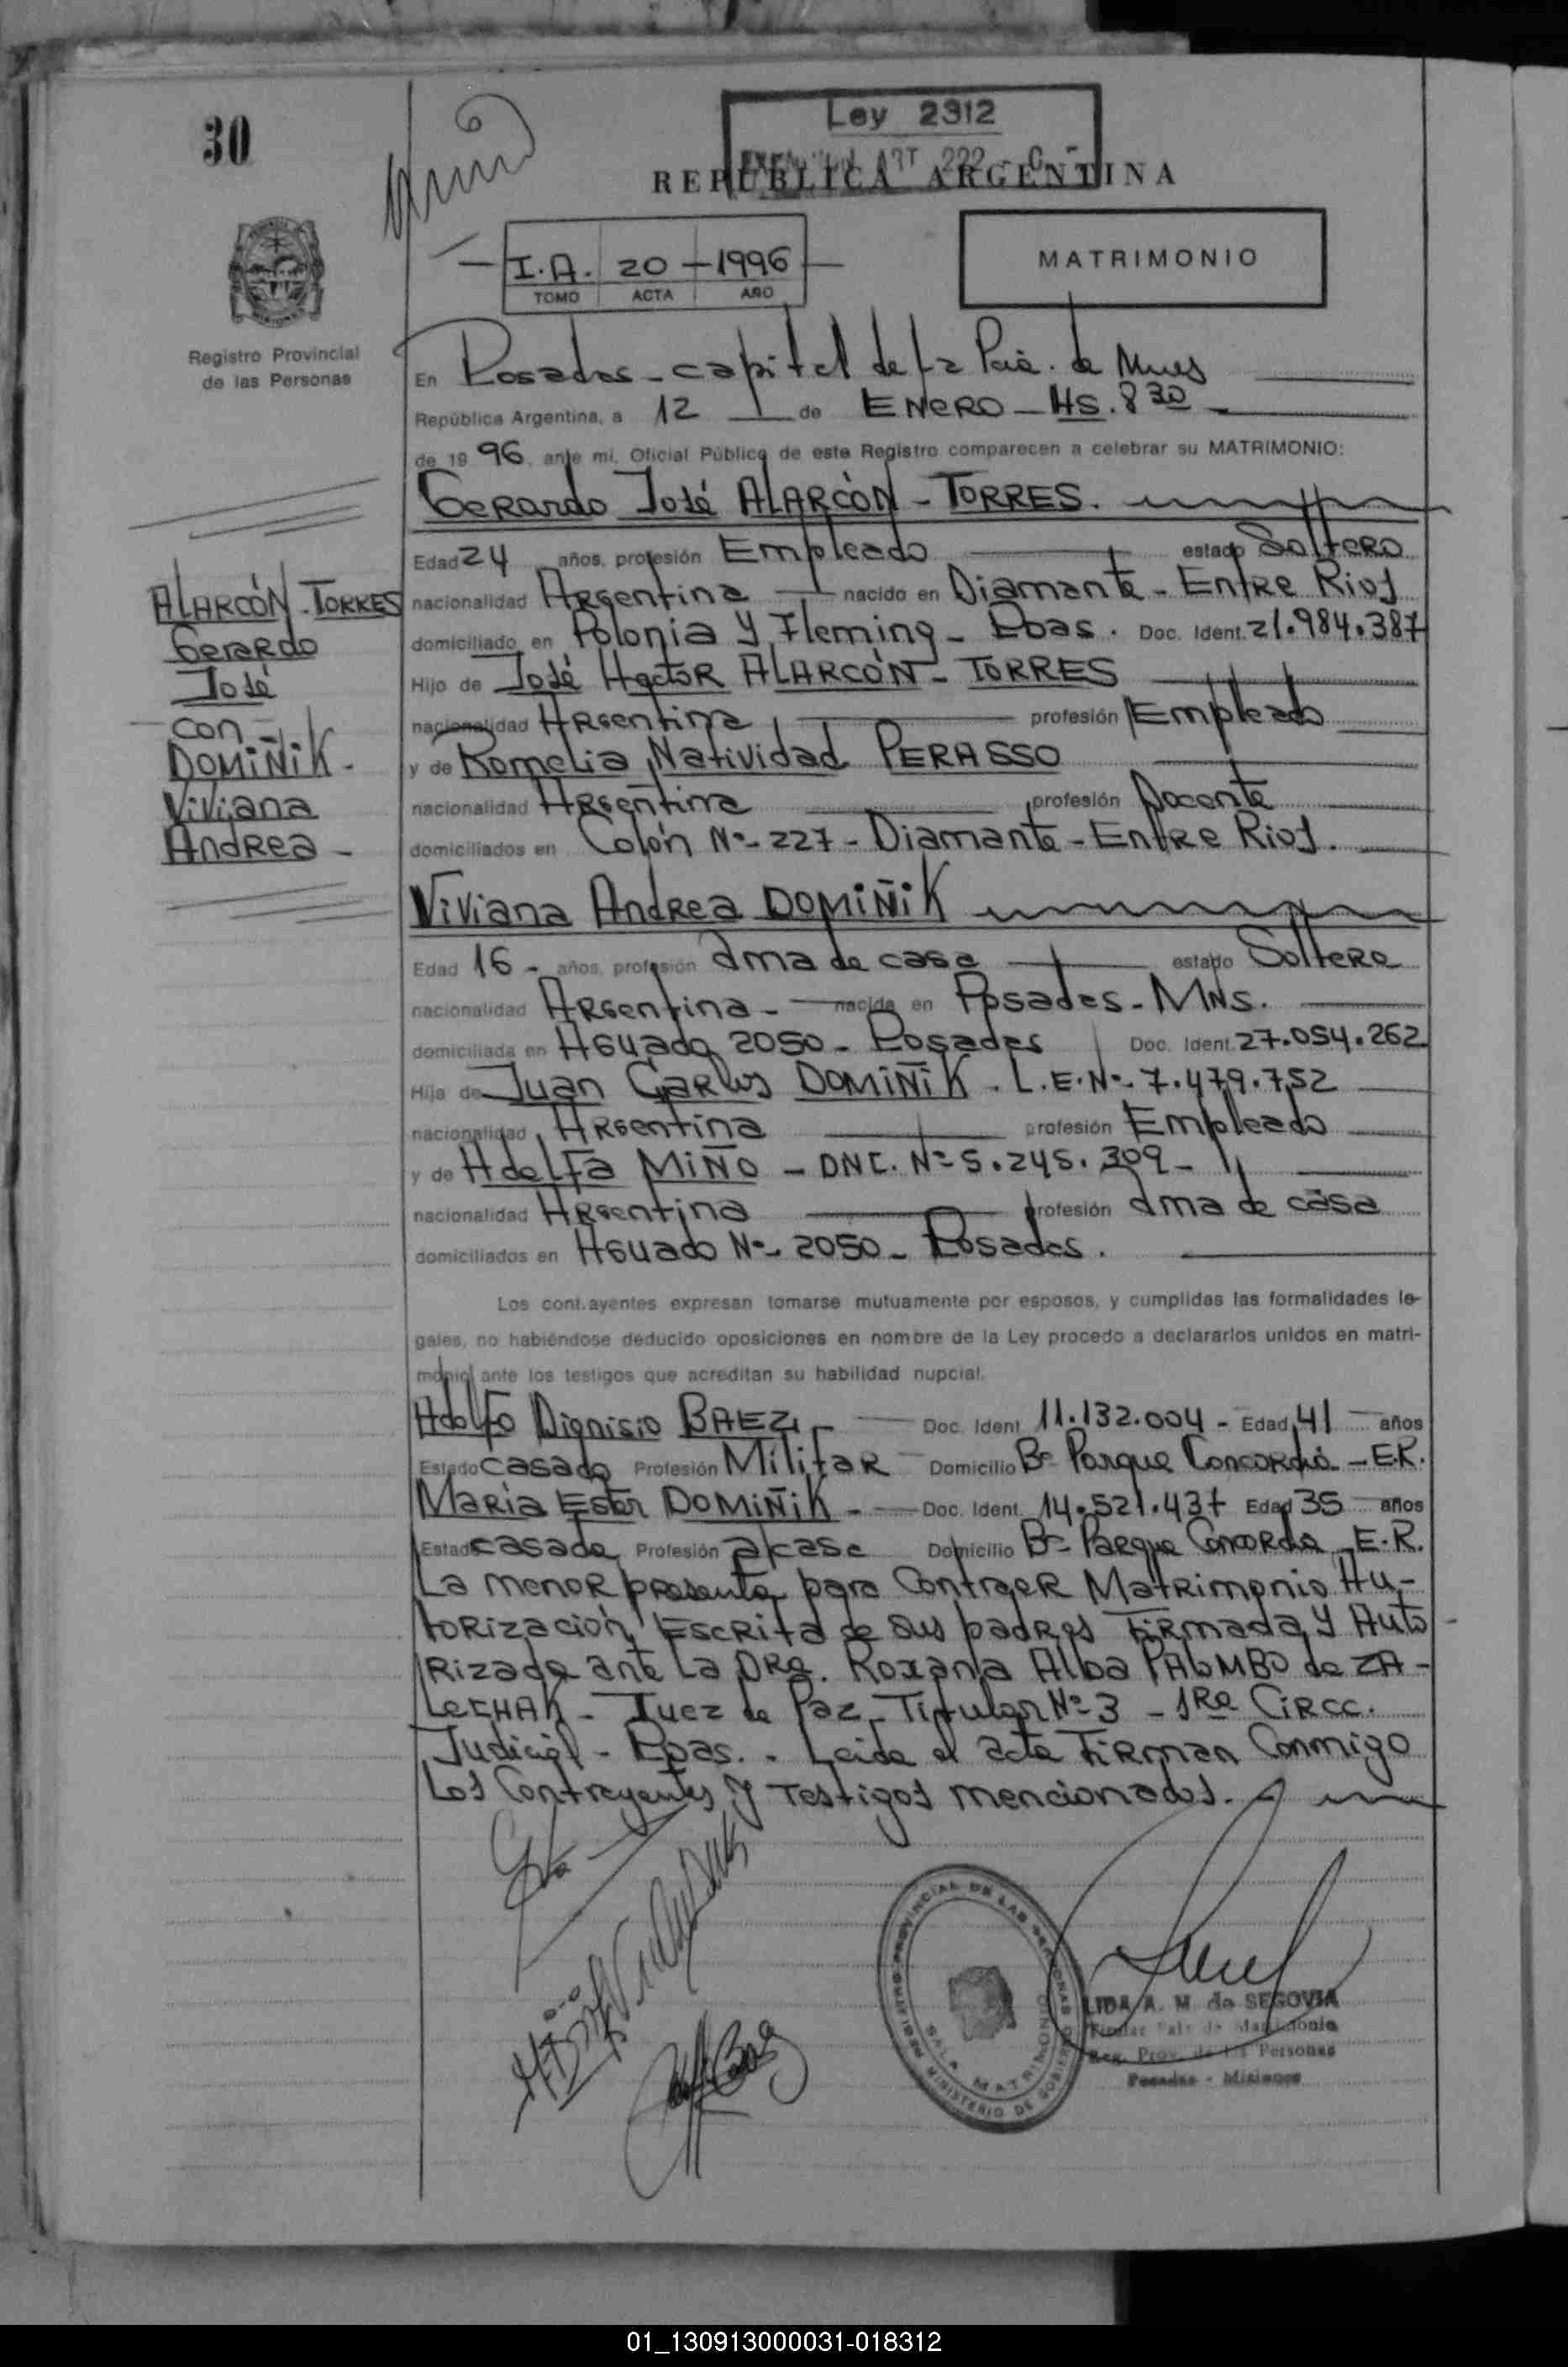 30
Ley 2312
ART 222
REPUBLICA ARGENTINA
I.A. 20 - 1996
TOMO ACTA AÑO
MATRIMONIO
Registro Provincial
de las Personas
En Posadas - capital de la Pcia. de Mnes
República Argentina, a 12 de ENERO - HS. 8 30 -
de 1996, ante mi, Oficial Público de este Registro comparecen a celebrar su MATRIMONIO:
Gerardo José ALARCÓN - TORRES.
Edad 24 años, profesión Empleado estado Soltero
nacionalidad Argentina nacido en Diamante - Entre Rios
domiciliado en Polonia y Fleming - Pdas. Doc. Ident. 21.984.387
Hijo de José Hector ALARCÓN - TORRES
nacionalidad Argentina profesión Empleado
y de Romelia Natividad PERASSO
nacionalidad Argentina profesión Docente
domiciliados en Colón Nº- 227 - Diamante - Entre Rios.
ALARCÓN - TORRES
Gerardo
José
- con -
DOMIÑiK -
Viviana
Andrea -
Viviana Andrea DOMIÑiK
Edad 16 - años, profesión ama de casa estado Soltera
nacionalidad Argentina - nacida en Posadas - MNS.
domiciliada en Aguado 2050 - Posadas Doc. Ident. 27.054.262
Hija de Juan Carlos DOMIÑiK . L.E.Nº- 7.479.752
nacionalidad Argentina profesión Empleado
y de Adelfa MIÑO - DNI. Nº 5.245.309 -
nacionalidad Argentina profesión ama de casa
domiciliados en Aguado Nº- 2050 - Posadas.
Los cont.ayentes expresan tomarse mutuamente por esposos, y cumplidas las formalidades le-
gales, no habiéndose deducido oposiciones en nombre de la Ley procedo a declararlos unidos en matri-
monio ante los testigos que acreditan su habilidad nupcial.
Adolfo Dionisio BAEZ - Doc. Ident. 11.132.004 - Edad 41 años
Estado casado Profesión Militar Domicilio Bº Parque Concordia - E.R.
Maria Ester DOMIÑiK - Doc. Ident. 14.521.437 Edad 35 años
Estado casada Profesión a/casa Domicilio Bº Parque Concordia - E.R.
La menor presenta para Contraer Matrimonio Au-
torización Escrita de sus padres Firmada y Auto
rizada ante La DRa. Roxana Alba PALOMBO de ZA-
LECHAK - Juez de Paz Titular Nº 3 - 1Ra Circc.
Judicial - Pdas. - Leida el acta Firman Conmigo
Los Contrayentes y Testigos mencionados. -
REGISTRO PROVINCIAL DE LAS PERSONAS
SALA MATRIMONIO
MINISTERIO DE GOBIERNO
LIDA A. M. de SEGOVIA
Titular Sala de Matrimonio
Reg. Prov. de las Personas
Posadas - Misiones
01_130913000031-018312